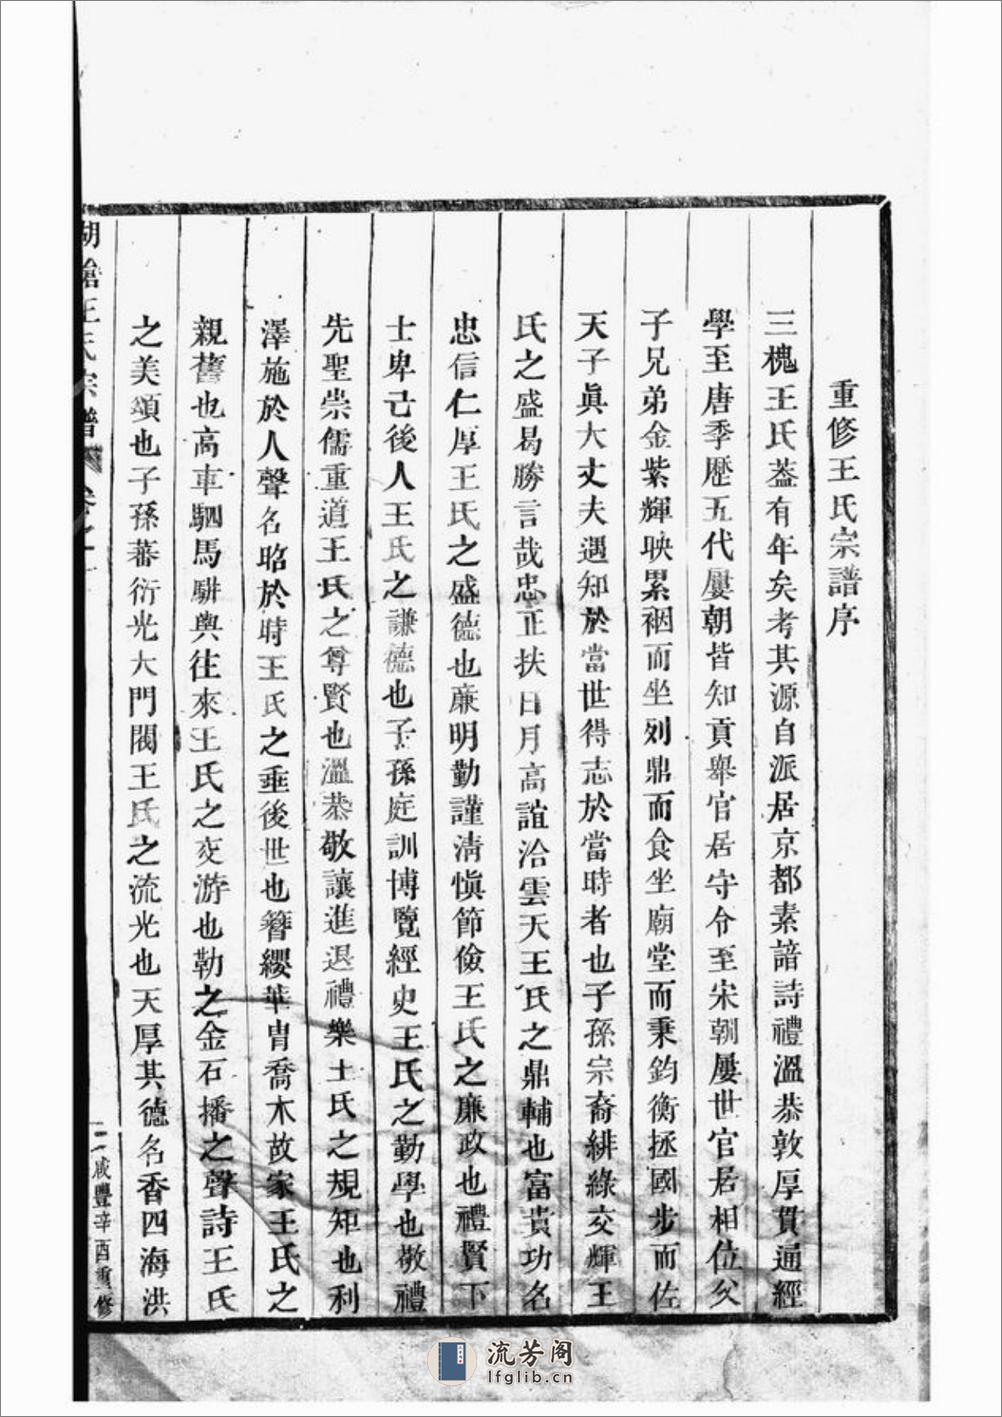 重修王氏宗譜序
三槐王氏葢有年矣考其源自派居京都素諳詩禮溫恭敦厚貫通經
學至唐季歷五代屢朝皆知貢舉官居守令至宋朝屢世官居相位父
子兄弟金紫輝映累裀而坐列鼎而食坐廟堂而秉鈞衡拯國步而佐
天子眞大丈夫遇知於當世得志於當時者也子孫宗裔緋綠交輝王
氏之盛曷勝言哉忠正扶日月高誼洽雲天王氏之鼎輔也富貴功名
忠信仁厚王氏之盛德也廉明勤謹淸愼節儉王氏之廉政也禮賢下
士卑己後人王氏之謙德也子孫庭訓博覽經史王氏之勤學也敬禮
先聖崇儒重道王氏之尊賢也溫恭敬讓進退禮樂王氏之規矩也利
澤施於人聲名昭於時王氏之垂後世也簪纓華冑喬木故家王氏之
親舊也高車駟馬駢輿往來王氏之交游也勒之金石播之聲詩王氏
之美頌也子孫蕃衍光大門閥王氏之流光也天厚其德名香四海洪
湖艙王氏宗譜 卷之一
二 咸豐辛酉重修
流芳阁
lfglib.cn